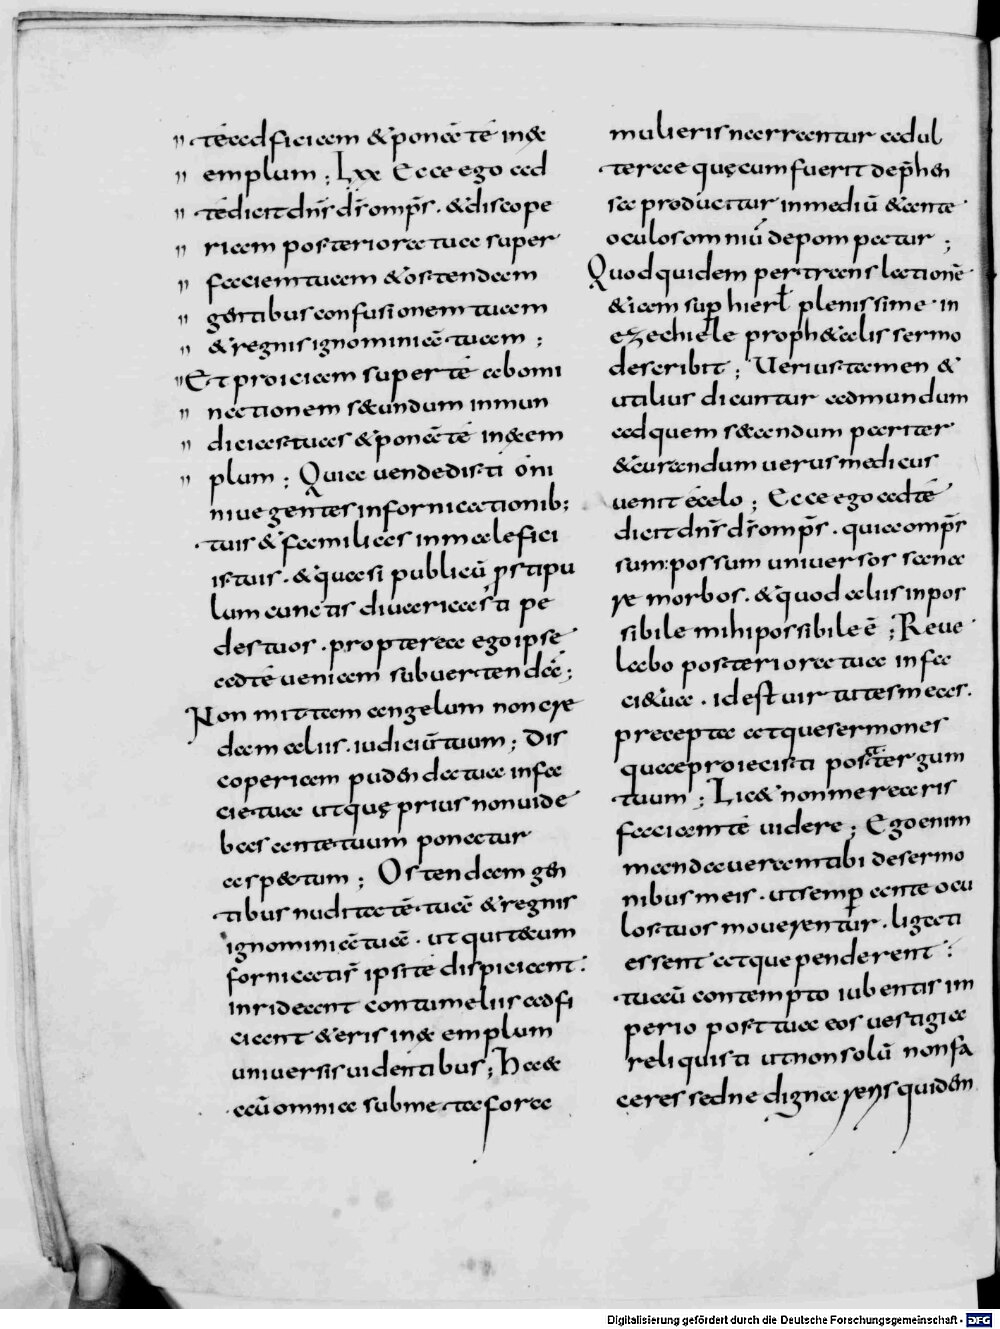 " te adficiam & ponā te in ex
" emplum ; Lxx Ecce ego ad
" te dicit dn̄s ds̄ omp̄s . & discope
" riam posteriora tua super
" faciem tuam & ostendam
" gentibus confusionem tuam
" & regnis ignominiā tuam ;
" Et proiciam super te abomi
" nationem secundum inmun
" dicias tuas & ponā te in exem
" plum ; Quia vendedisti om̄i
niue gentes in fornicationib;
tuis & familias in malefici
is tuis . & quasi publicū p̄stipu
lum cunctis diuaricasti pe
des tuos . propterea ego ipse
ad te veniam subvertendā ;
Non mittam angelum non cre
dam aliis . iudiciū tuum ; Dis
coperiam pudenda tua in fa
cie tua ut quę prius non uide
bas ante tuum ponatur
aspectum ; Ostendam gen
tibus nuditatē tuā & regnis
ignominiā tuā . ut qui tecum
fornicatis̄ ipsi te dispiciant .
inrideant contumeliis adfi
ciant & eris in exemplum
universis uidentibus ; Haec
aū omnia sub metafora
mulieris narrantur adul
terae quę cum fuerit dep̄hen
sa producitur in mediū & ante
oculos omniū depompatur ;
Quod quidem per traens lectionē
&iam sup hierl̄ plenissime in
ezechiele prophetalis sermo
describit ; Verius tamen &
utilius dicuntur ad mundum
ad quem sanandum pariter
& curandum uerus medicus
venit e caelo ; Ecce ego ad te
dicit dn̄s ds̄ omp̄s . quia omp̄s
sum . possum universos sana
re morbos . & quod aliis inpos
sibile mihi possibile ē ; Reue
labo posteriora tua in fa
cie tua . id est uirtutes meas .
precepta atque sermones
quae proiecisti post tergum
tuum ; Lic& non mereris
faciam te videre ; Ego enim
mandaueram tibi de sermo
nibus meis . ut semp ante ocu
los tuos moverentur . ligati
essent atque penderent .
tu aū contempto iubentis im
perio post tua eos vestigia
reliquisti ut non solū non fa
ceres sed ne digna rens quidem
Digitalisierung gefördert durch die Deutsche Forschungsgemeinschaft - DFG